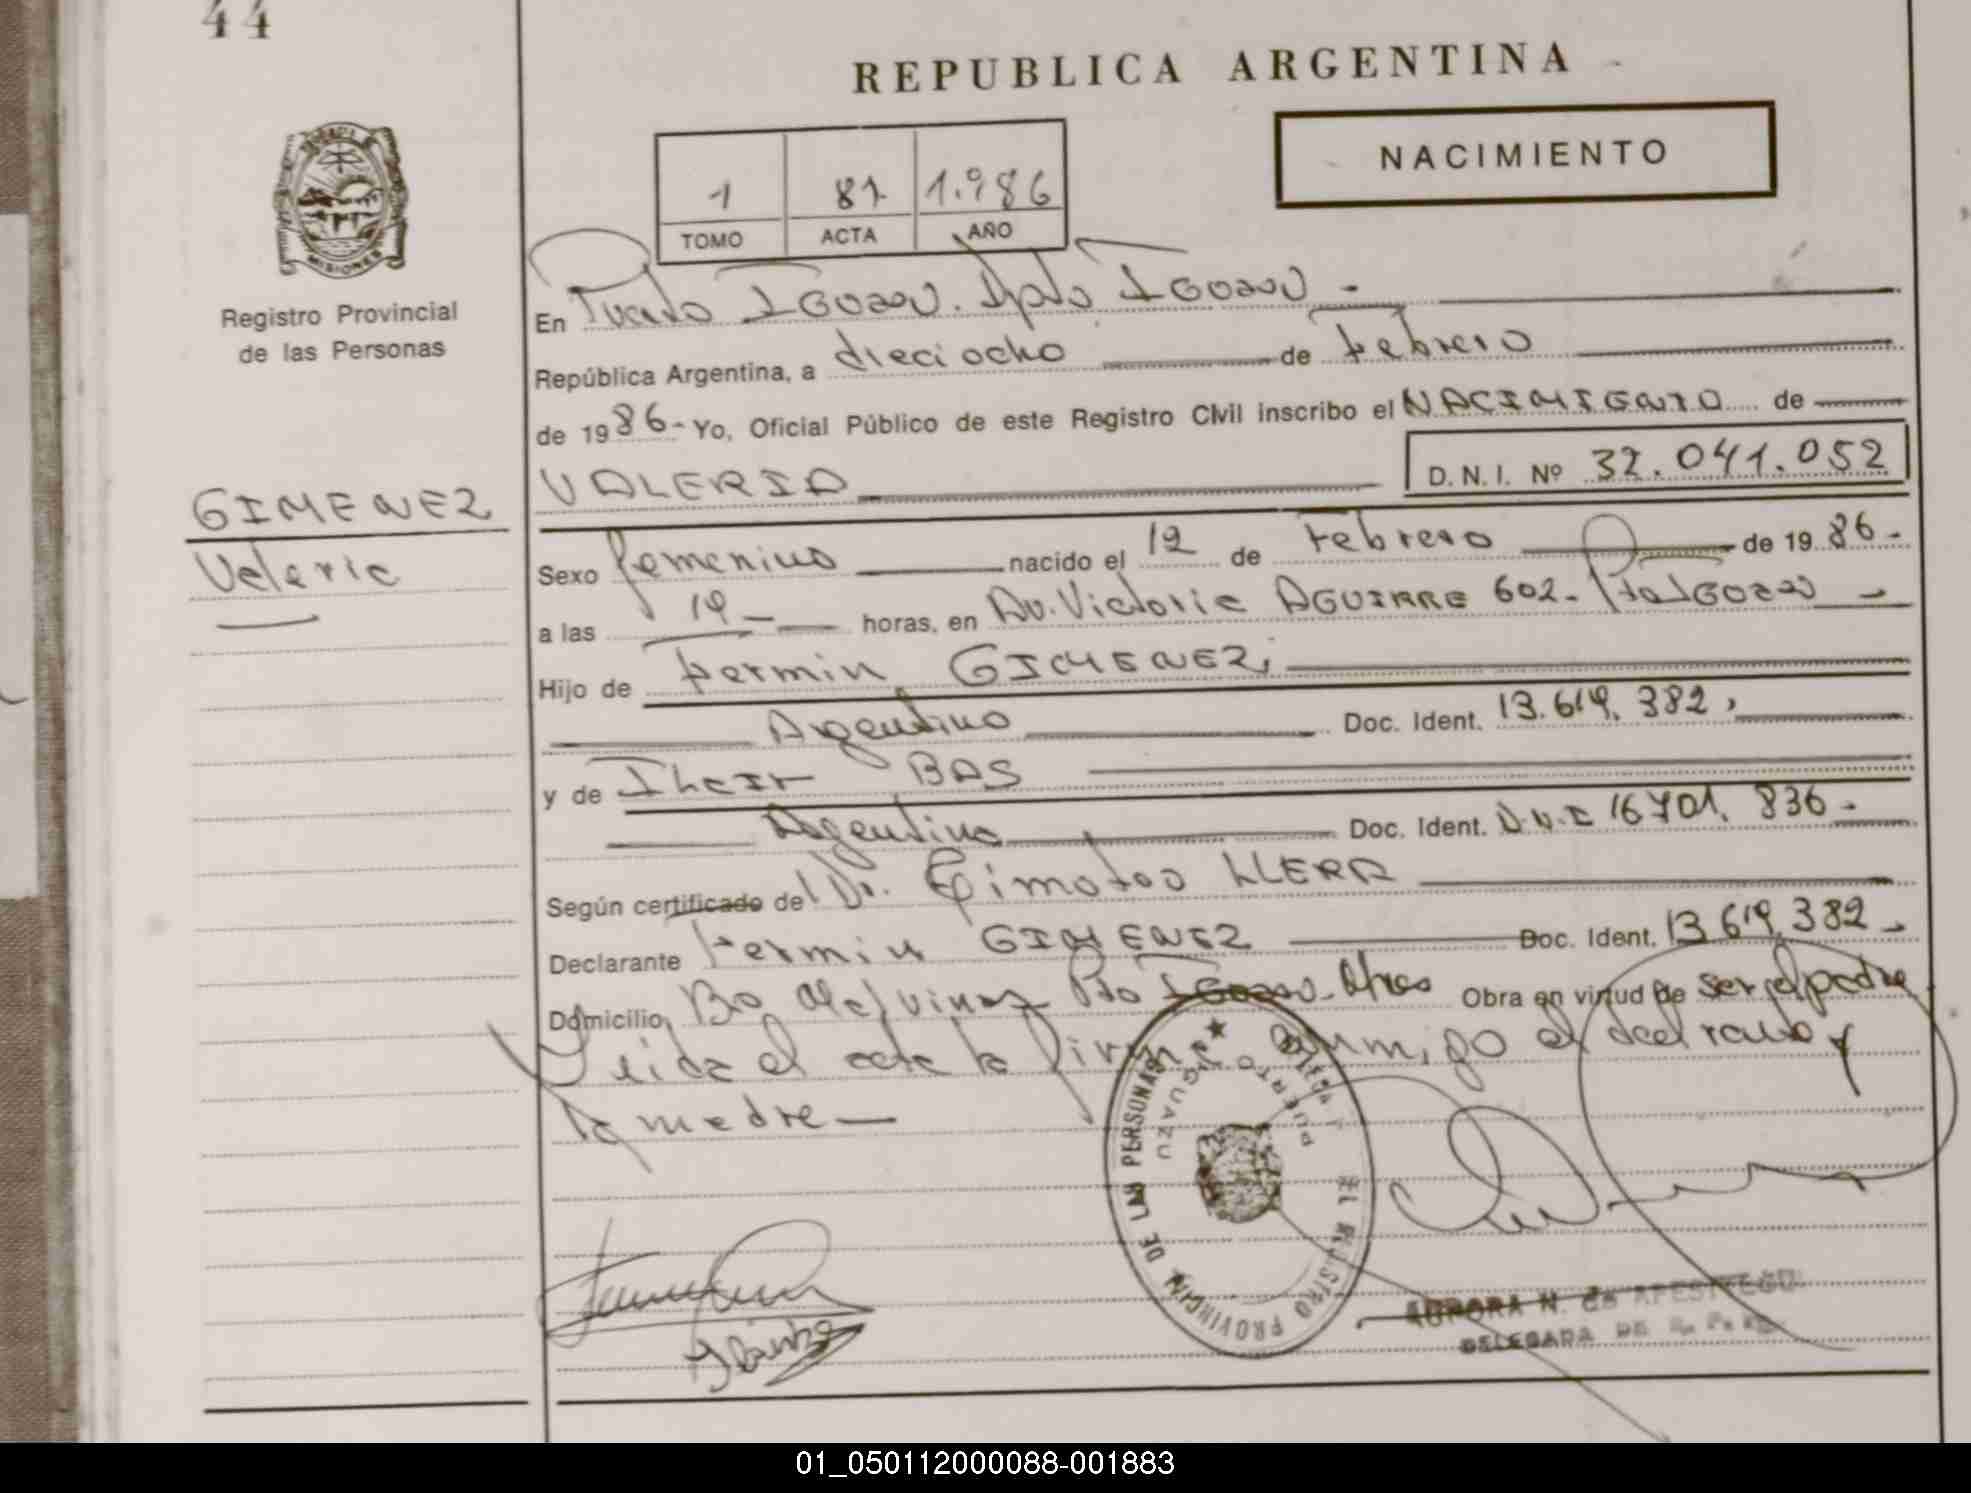 44
REPUBLICA ARGENTINA
NACIMIENTO
1 87 1.986
TOMO ACTA AÑO
MISIONES
Registro Provincial
de las Personas
GIMENEZ
Valeria
En Puerto IGUAZU. Dpto IGUAZU -
República Argentina, a dieciocho de Febrero
de 1986- Yo, Oficial Público de este Registro Civil inscribo el NACIMIENTO de
VALERIA
D. N. I. Nº 32.041.052
Sexo femenino nacido el 12 de Febrero de 1986-
a las 19 - horas, en Av. Victoria AGUIRRE 602- Pto IGUAZU -
Hijo de Fermin GIMENEZ,
Argentino Doc. Ident. 13.619.382,
y de BAS
Argentina Doc. Ident. D.N.I 16 701.836-
Según certificado del Dr. Timoteo LLERA
Declarante Fermin GIMENEZ Doc. Ident. 13 619.382-
Domicilio Bo Malvinas Pto IGUAZU- Mnes Obra en virtud de ser el padre
Leida el acta la firman conmigo el declarante y
la madre -
REGISTRO PROVINCIAL DE LAS PERSONAS
PUERTO IGUAZU
AURORA N. de APESTEGUI
DELEGADA DE
01_050112000088-001883